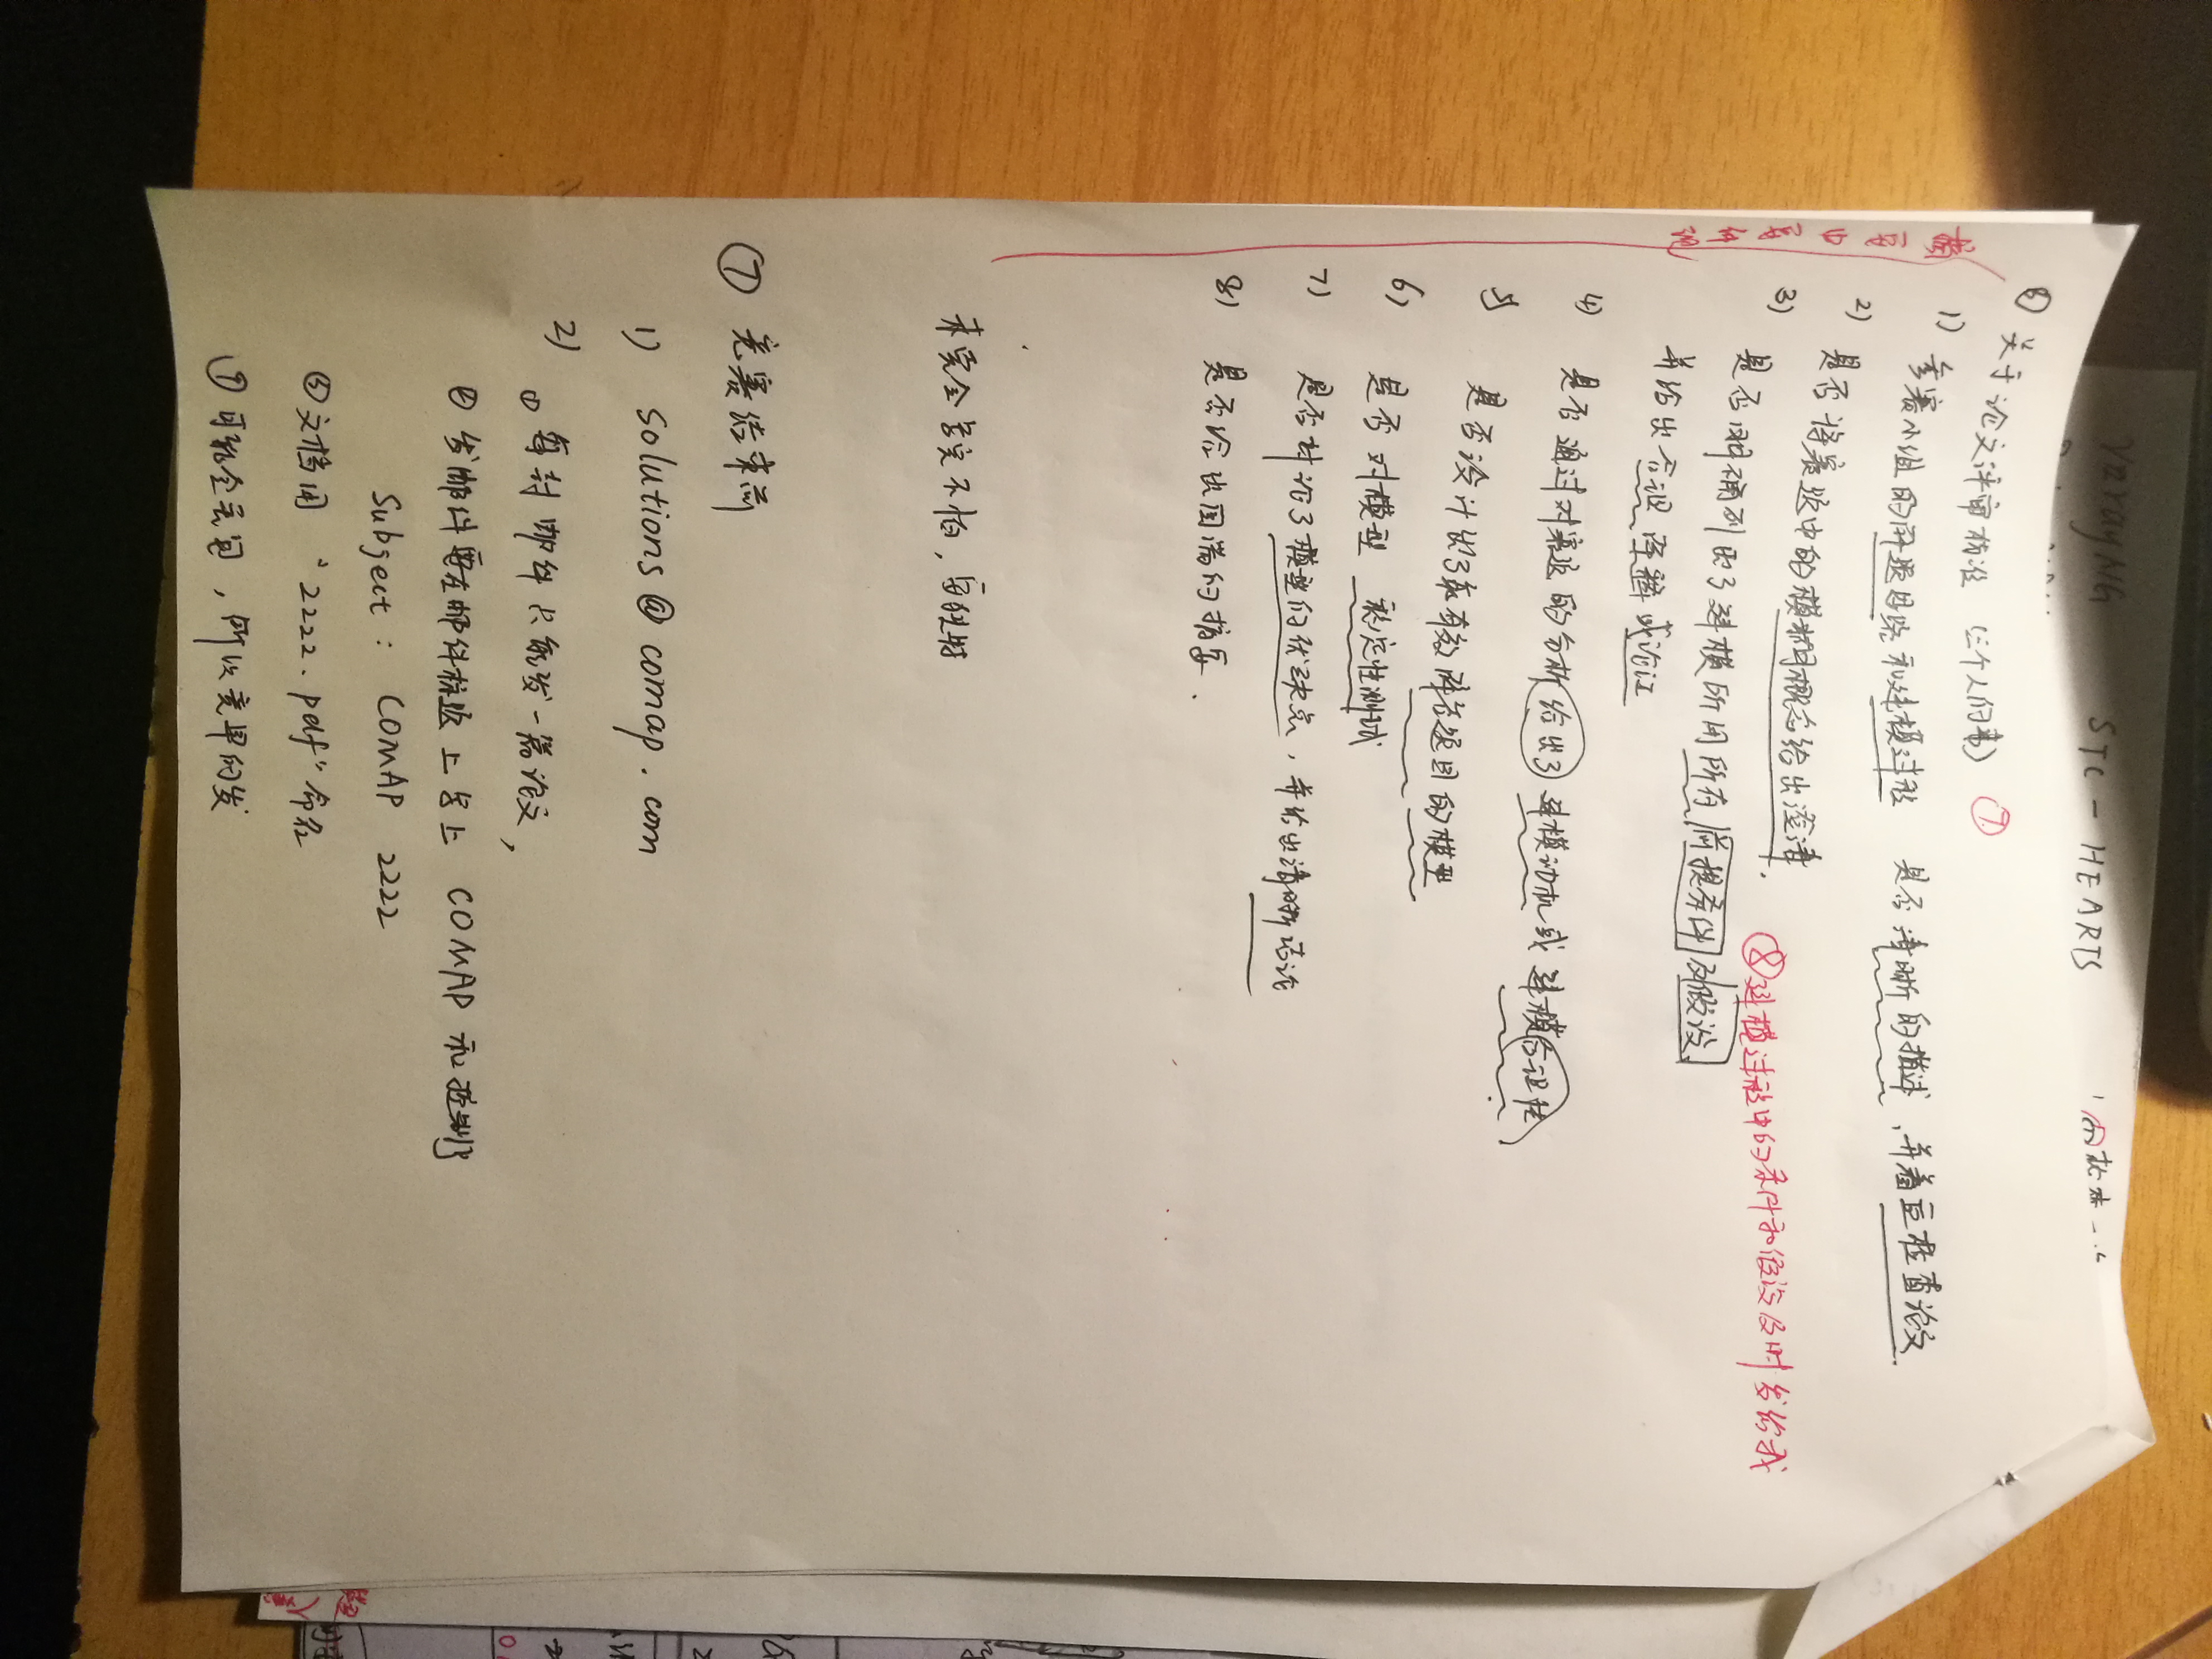 STC - HEARTS
⑥ 关于论文评审标准 (三个人的事) ⑦
摘要中要体现
1) 参赛小组的解题思路和建模过程 是否清晰的描述,并着重检查论文.
2) 是否将赛题中的模糊概念给出澄清.
⑧建模过程中的条件和假设及时发给我
3) 是否明确列出了建模所用所有前提条件及假设.
并给出合理解释或论证
4) 是否通过对赛题的分析给出了建模动机或建模合理性
5) 是否设计出了能有效解答题目的模型
6) 是否对模型 稳定性测试
7) 是否讨论了模型的优缺点,并给出清晰结论
8) 是否给出圆满的摘要.
未完全写完不怕,要
⑦ 竞赛结束前
1) solutions@comap.com
2) ① 每封邮件只能发一篇论文,
② 发邮件要在邮件标题上写上 COMAP 和控制号
Subject: COMAP 2222
③ 文档用 "2222.pdf" 命名
④ 可能会丢包,所以竟早的发